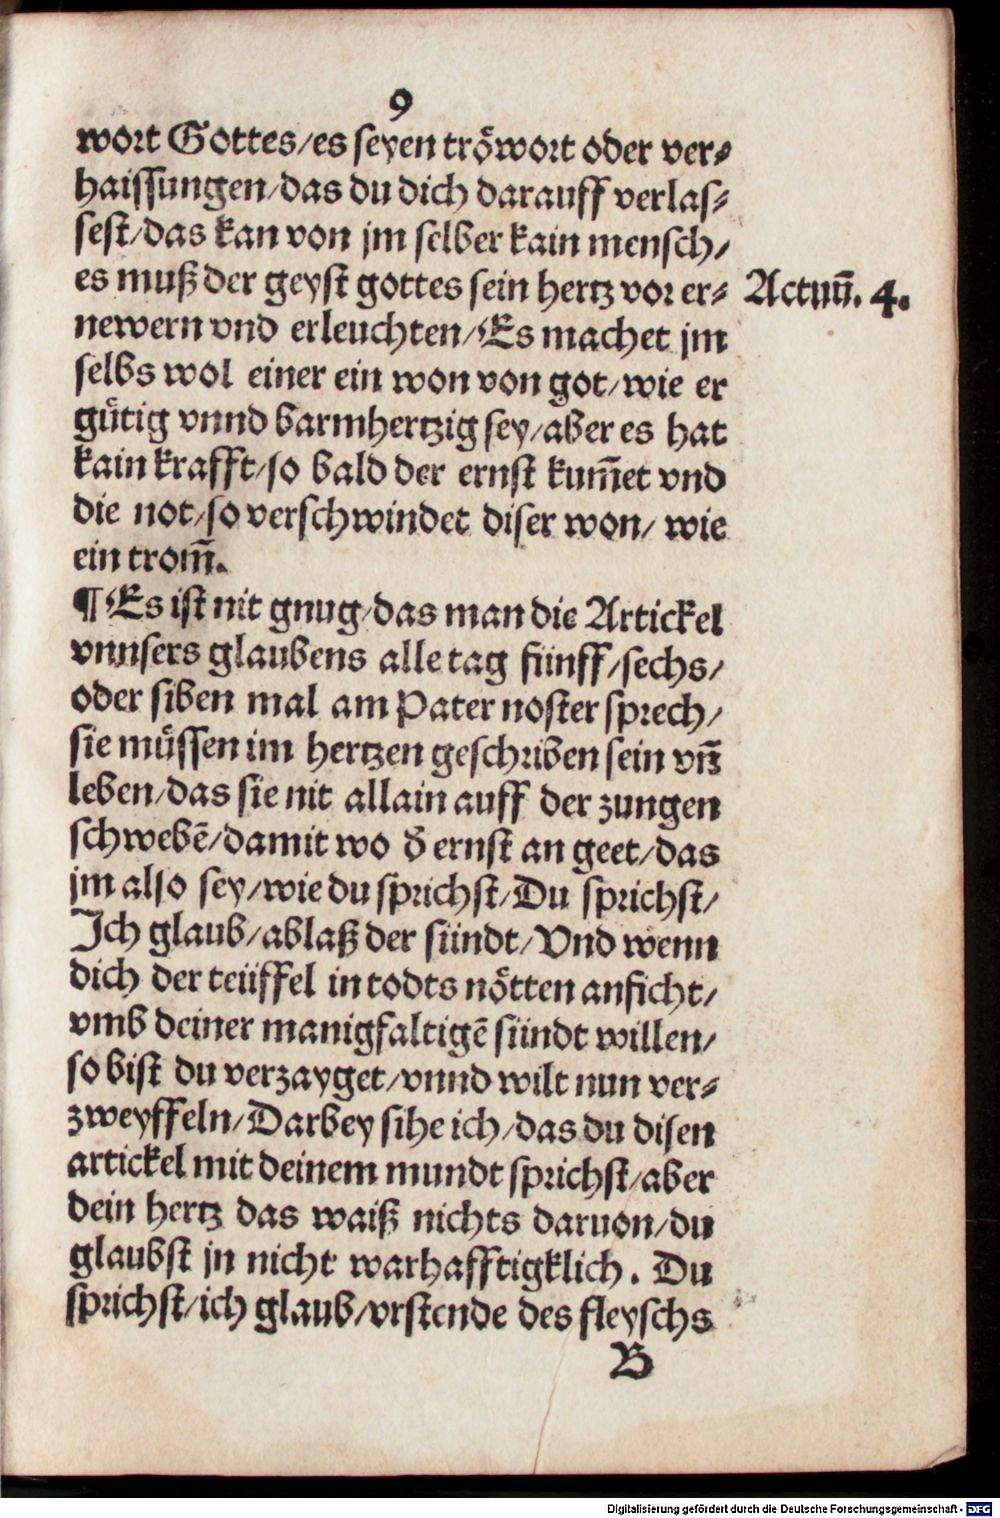 9
wort Gottes/es seyen tröwort oder ver⸗
haissungen/das du dich darauff verlas⸗
sest/das kan von jm selber kain mensch/
es muß der geyst gottes sein hertz vor er⸗
Actuū. 4.
newern vnd erleuchten/Es machet jm
selbs wol einer ein won von got/wie er
gütig vnnd barmhertzig sey/aber es hat
kain krafft/so bald der ernst kum̄et vnd
die not/so verschwindet diser won/ wie
ein trom̄.
¶Es ist nit gnug/das man die Artickel
vnnsers glaubens alle tag fünff/sechs/
oder siben mal am Pater noster sprech/
sie müssen im hertzen geschriben sein vn̄
leben/das sie nit allain auff der zungen
schwebē/damit wo d̄ ernst an geet/das
jm also sey/wie du sprichst/Du sprichst/
Ich glaub/ablaß der sündt/Vnd wenn
dich der teüffel in todts nötten anficht/
vmb deiner manigfaltigē sündt willen/
so bist du verzayget/vnnd wilt nun ver⸗
zweyffeln/Darbey sihe ich/das du disen
artickel mit deinem mundt sprichst/aber
dein hertz das waiß nichts daruon/du
glaubst jn nicht warhafftigklich. Du
sprichst/ich glaub/vrstende des fleyschs
B
Digitalisierung gefördert durch die Deutsche Forschungsgemeinschaft - DFG